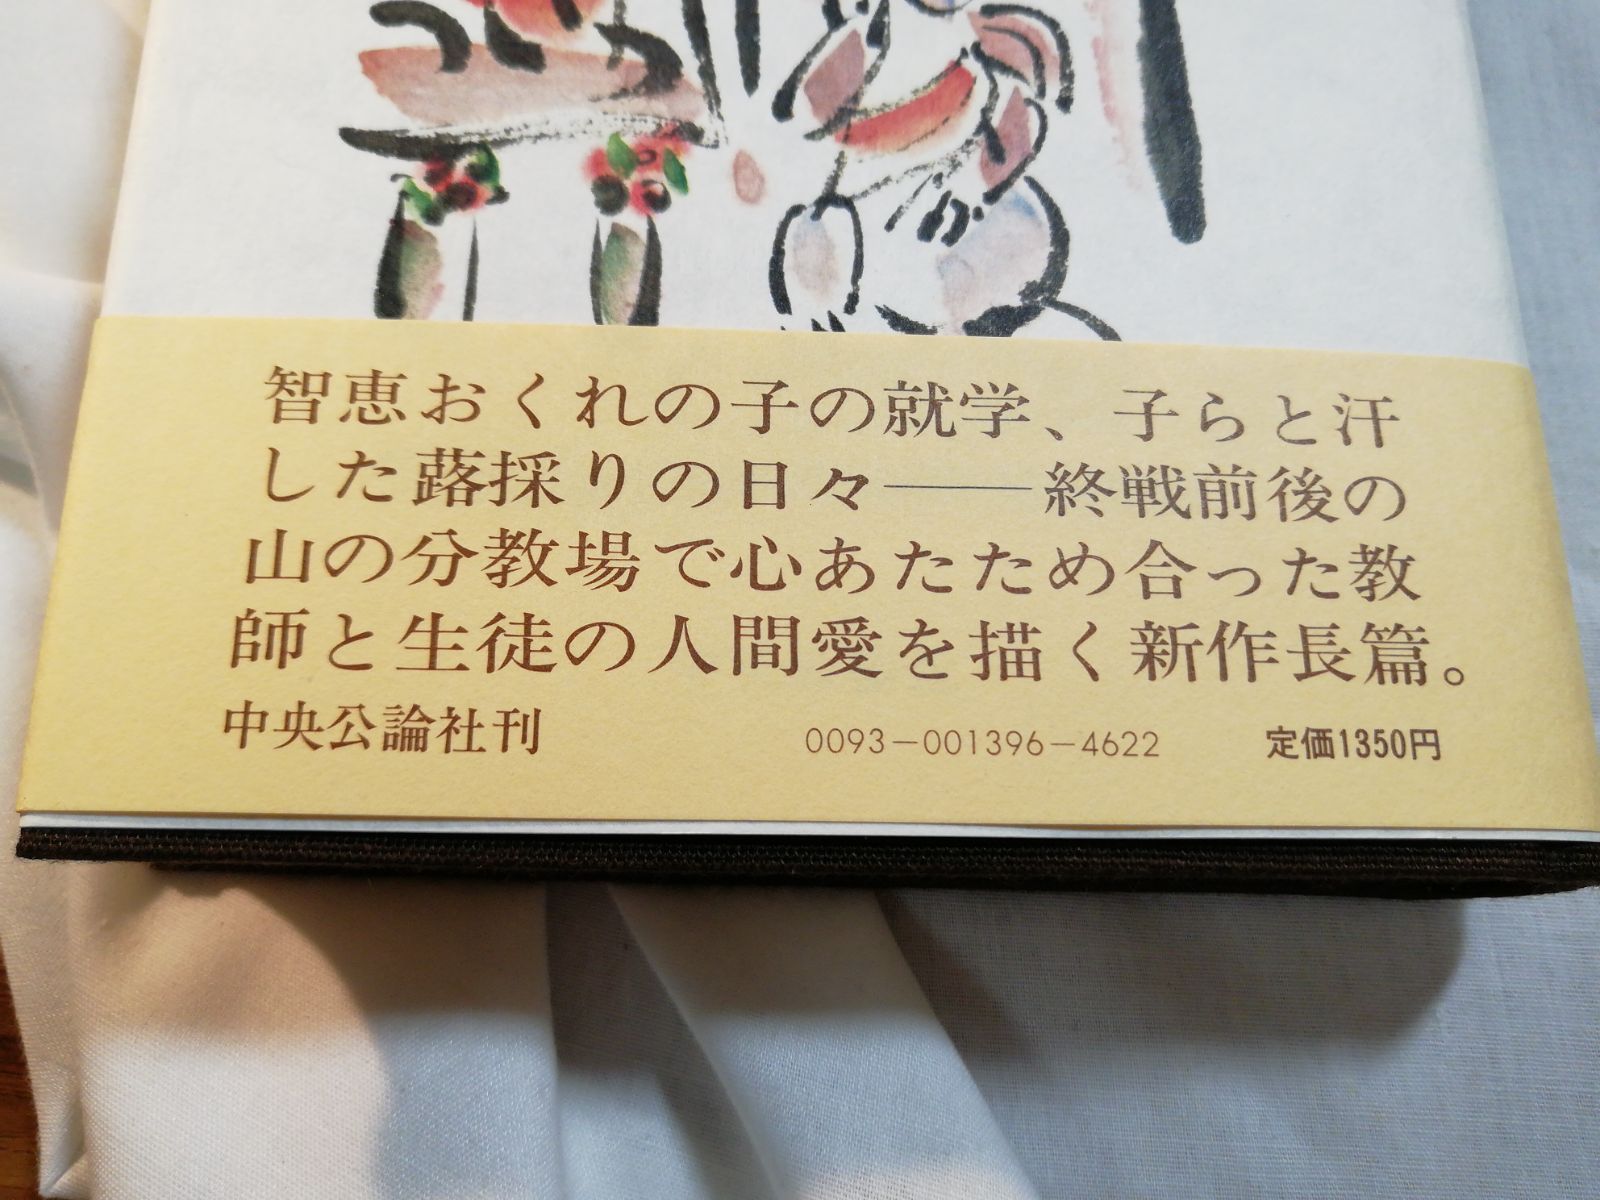 智恵おくれの子の就学、子らと汗
した蕗採りの日々――終戦前後の
山の分教場で心あたため合った教
師と生徒の人間愛を描く新作長篇。
中央公論社刊 0093-001396-4622 定価1350円